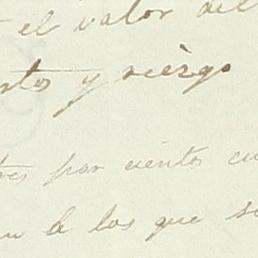 el valor del
rtos y riesgo
tres por ciento cu
en la los que se